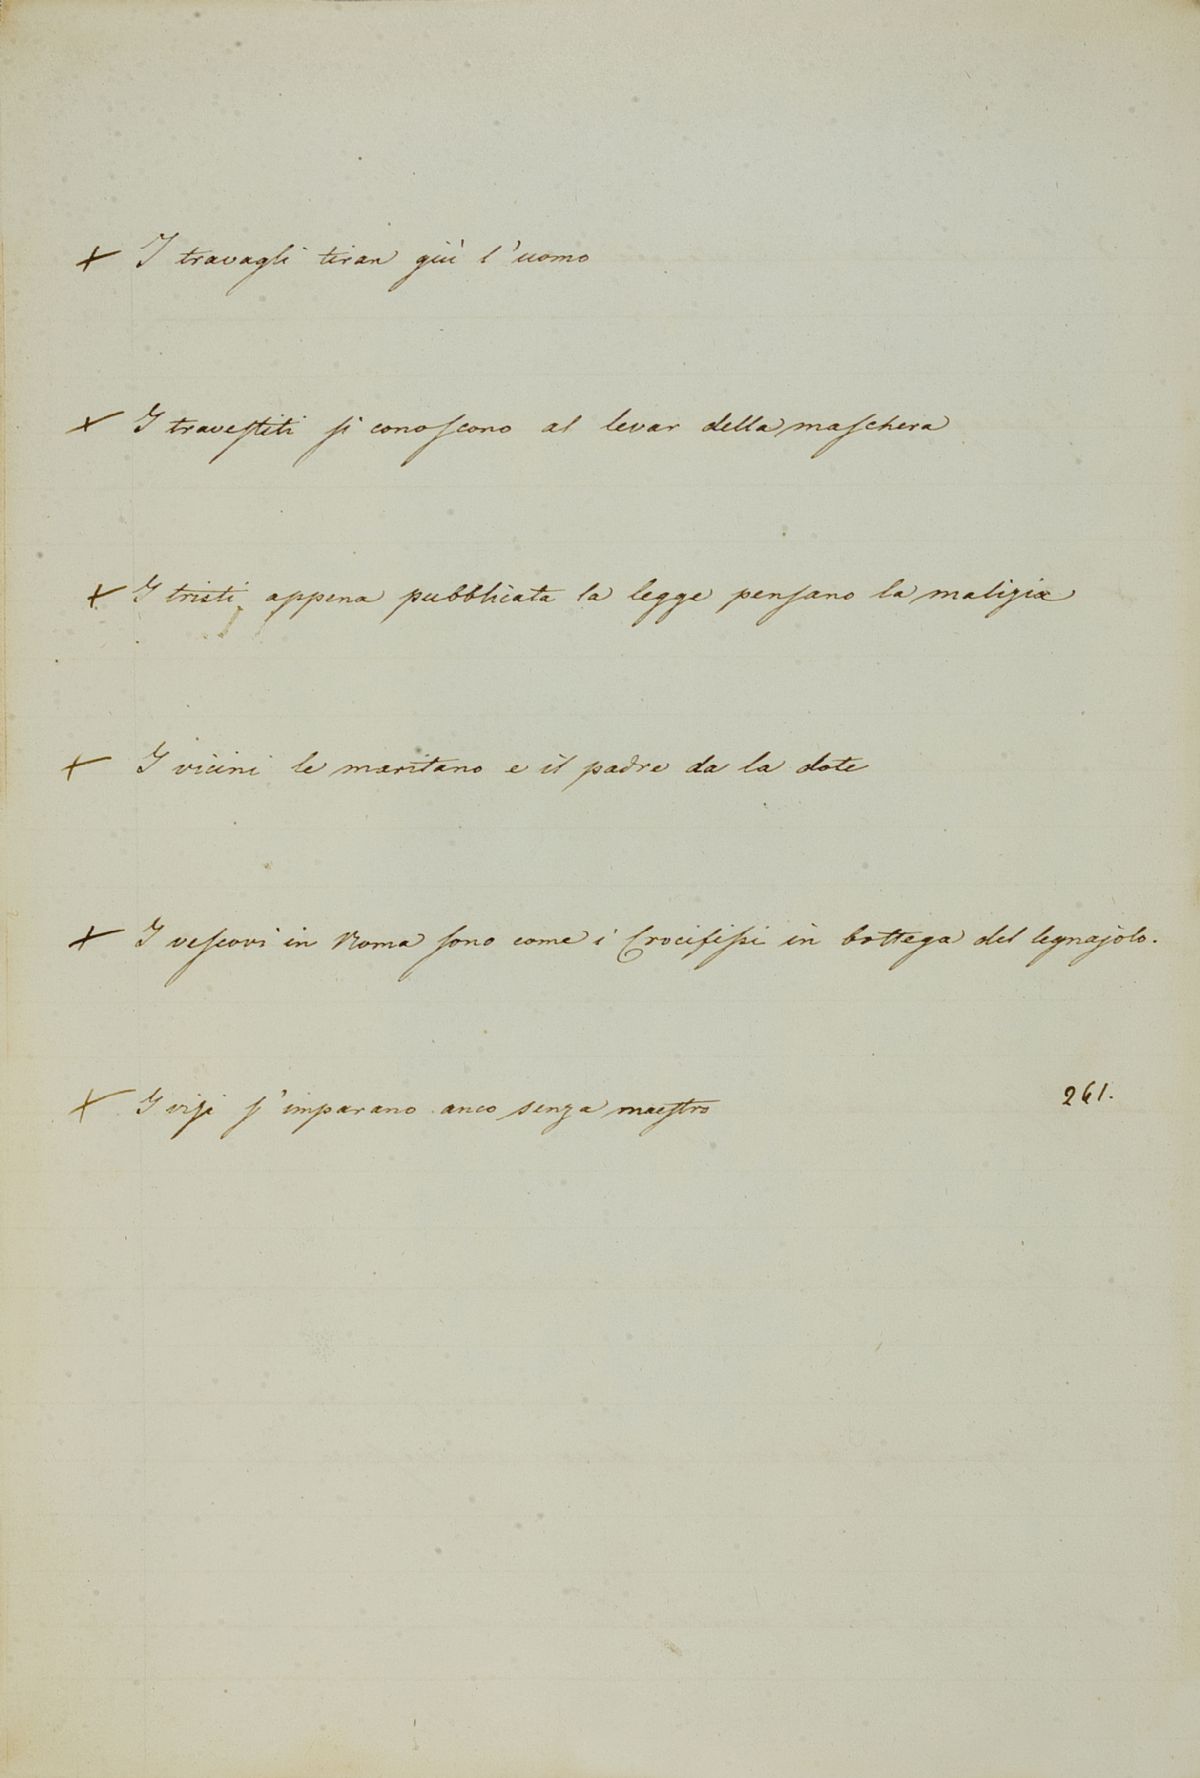 + I travagli tiran giù l'uomo
+ I traveſtiti ſi conoſcono al levar della maſchera
+ I tristi, appena pubblicata la legge penſano la malizia
+ I vicini le maritano e il padre da la dote
+ I veſcovi in Roma ſono come i Crocifiſsi in bottega del legnajolo.
+ I vizi s'imparano anco senza maeſtro 261.